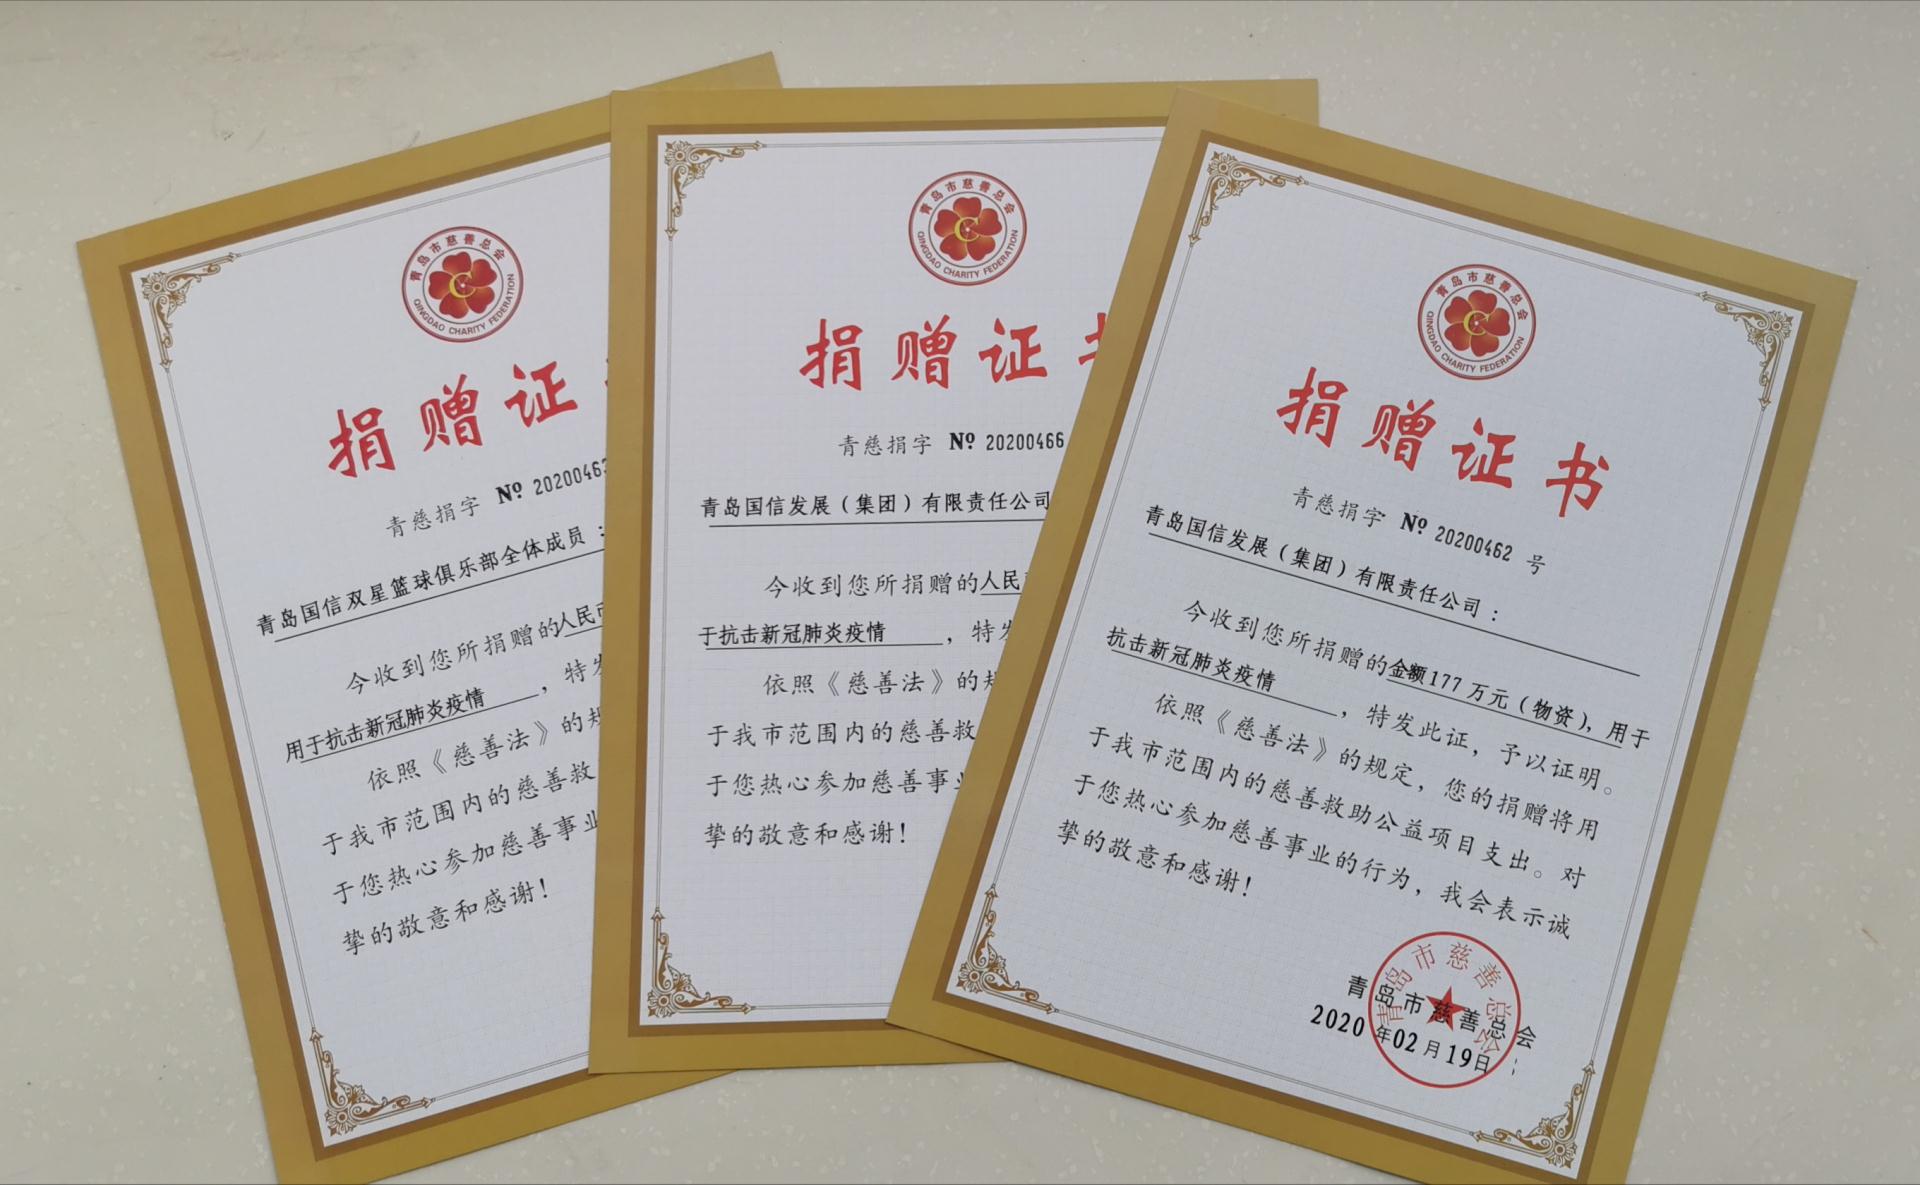 青岛市慈善总会
QINGDAO CHARITY FEDERATION
捐赠证
青慈捐字 № 20200463
青岛国信双星篮球俱乐部全体成员：
今收到您所捐赠的人民
用于抗击新冠肺炎疫情，特发
依照《慈善法》的规
于我市范围内的慈善救
于您热心参加慈善事业
挚的敬意和感谢！
青岛市慈善总会
QINGDAO CHARITY FEDERATION
捐赠证书
青慈捐字 № 20200466
青岛国信发展（集团）有限责任公司
今收到您所捐赠的人民
于抗击新冠肺炎疫情，特发
依照《慈善法》的规
于我市范围内的慈善救
于您热心参加慈善事业
挚的敬意和感谢！
青岛市慈善总会
QINGDAO CHARITY FEDERATION
捐赠证书
青慈捐字 № 20200462 号
青岛国信发展（集团）有限责任公司：
今收到您所捐赠的金额177万元（物资），用于
抗击新冠肺炎疫情，特发此证，予以证明。
依照《慈善法》的规定，您的捐赠将用
于我市范围内的慈善救助公益项目支出。对
于您热心参加慈善事业的行为，我会表示诚
挚的敬意和感谢！
青岛市慈善总会
青岛市慈善总会
2020年02月19日